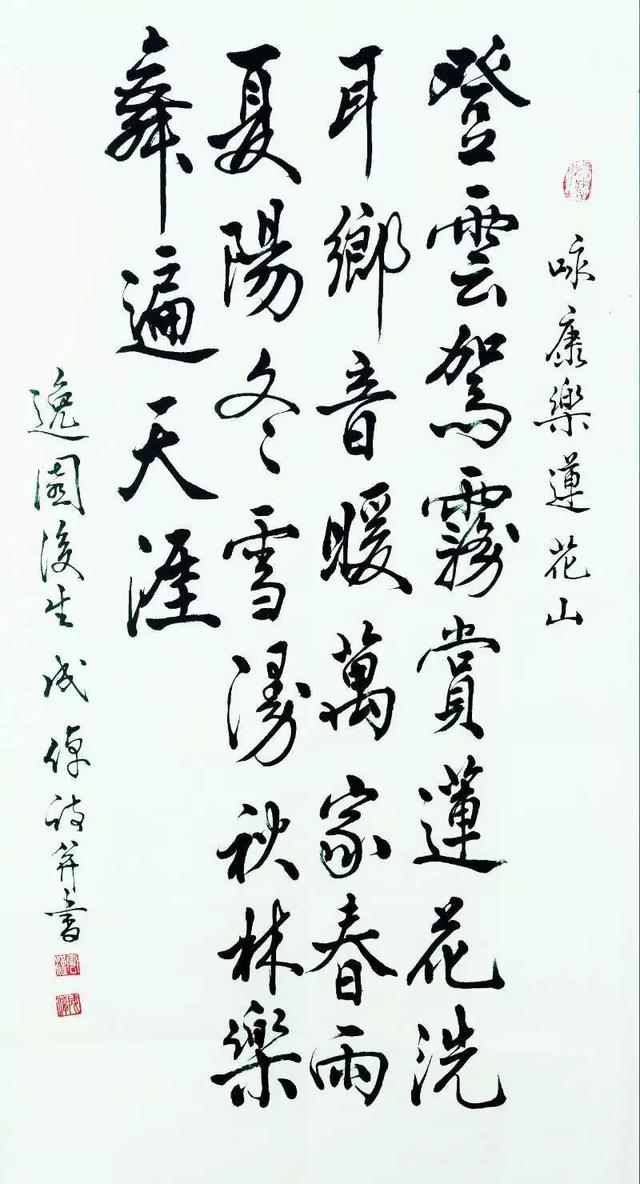 詠康樂蓮花山
登雲駕霧賞蓮花洗
耳鄉音暖萬家春雨
夏陽冬雪漫秋林樂
舞遍天涯
逸園後生成偉詩并書